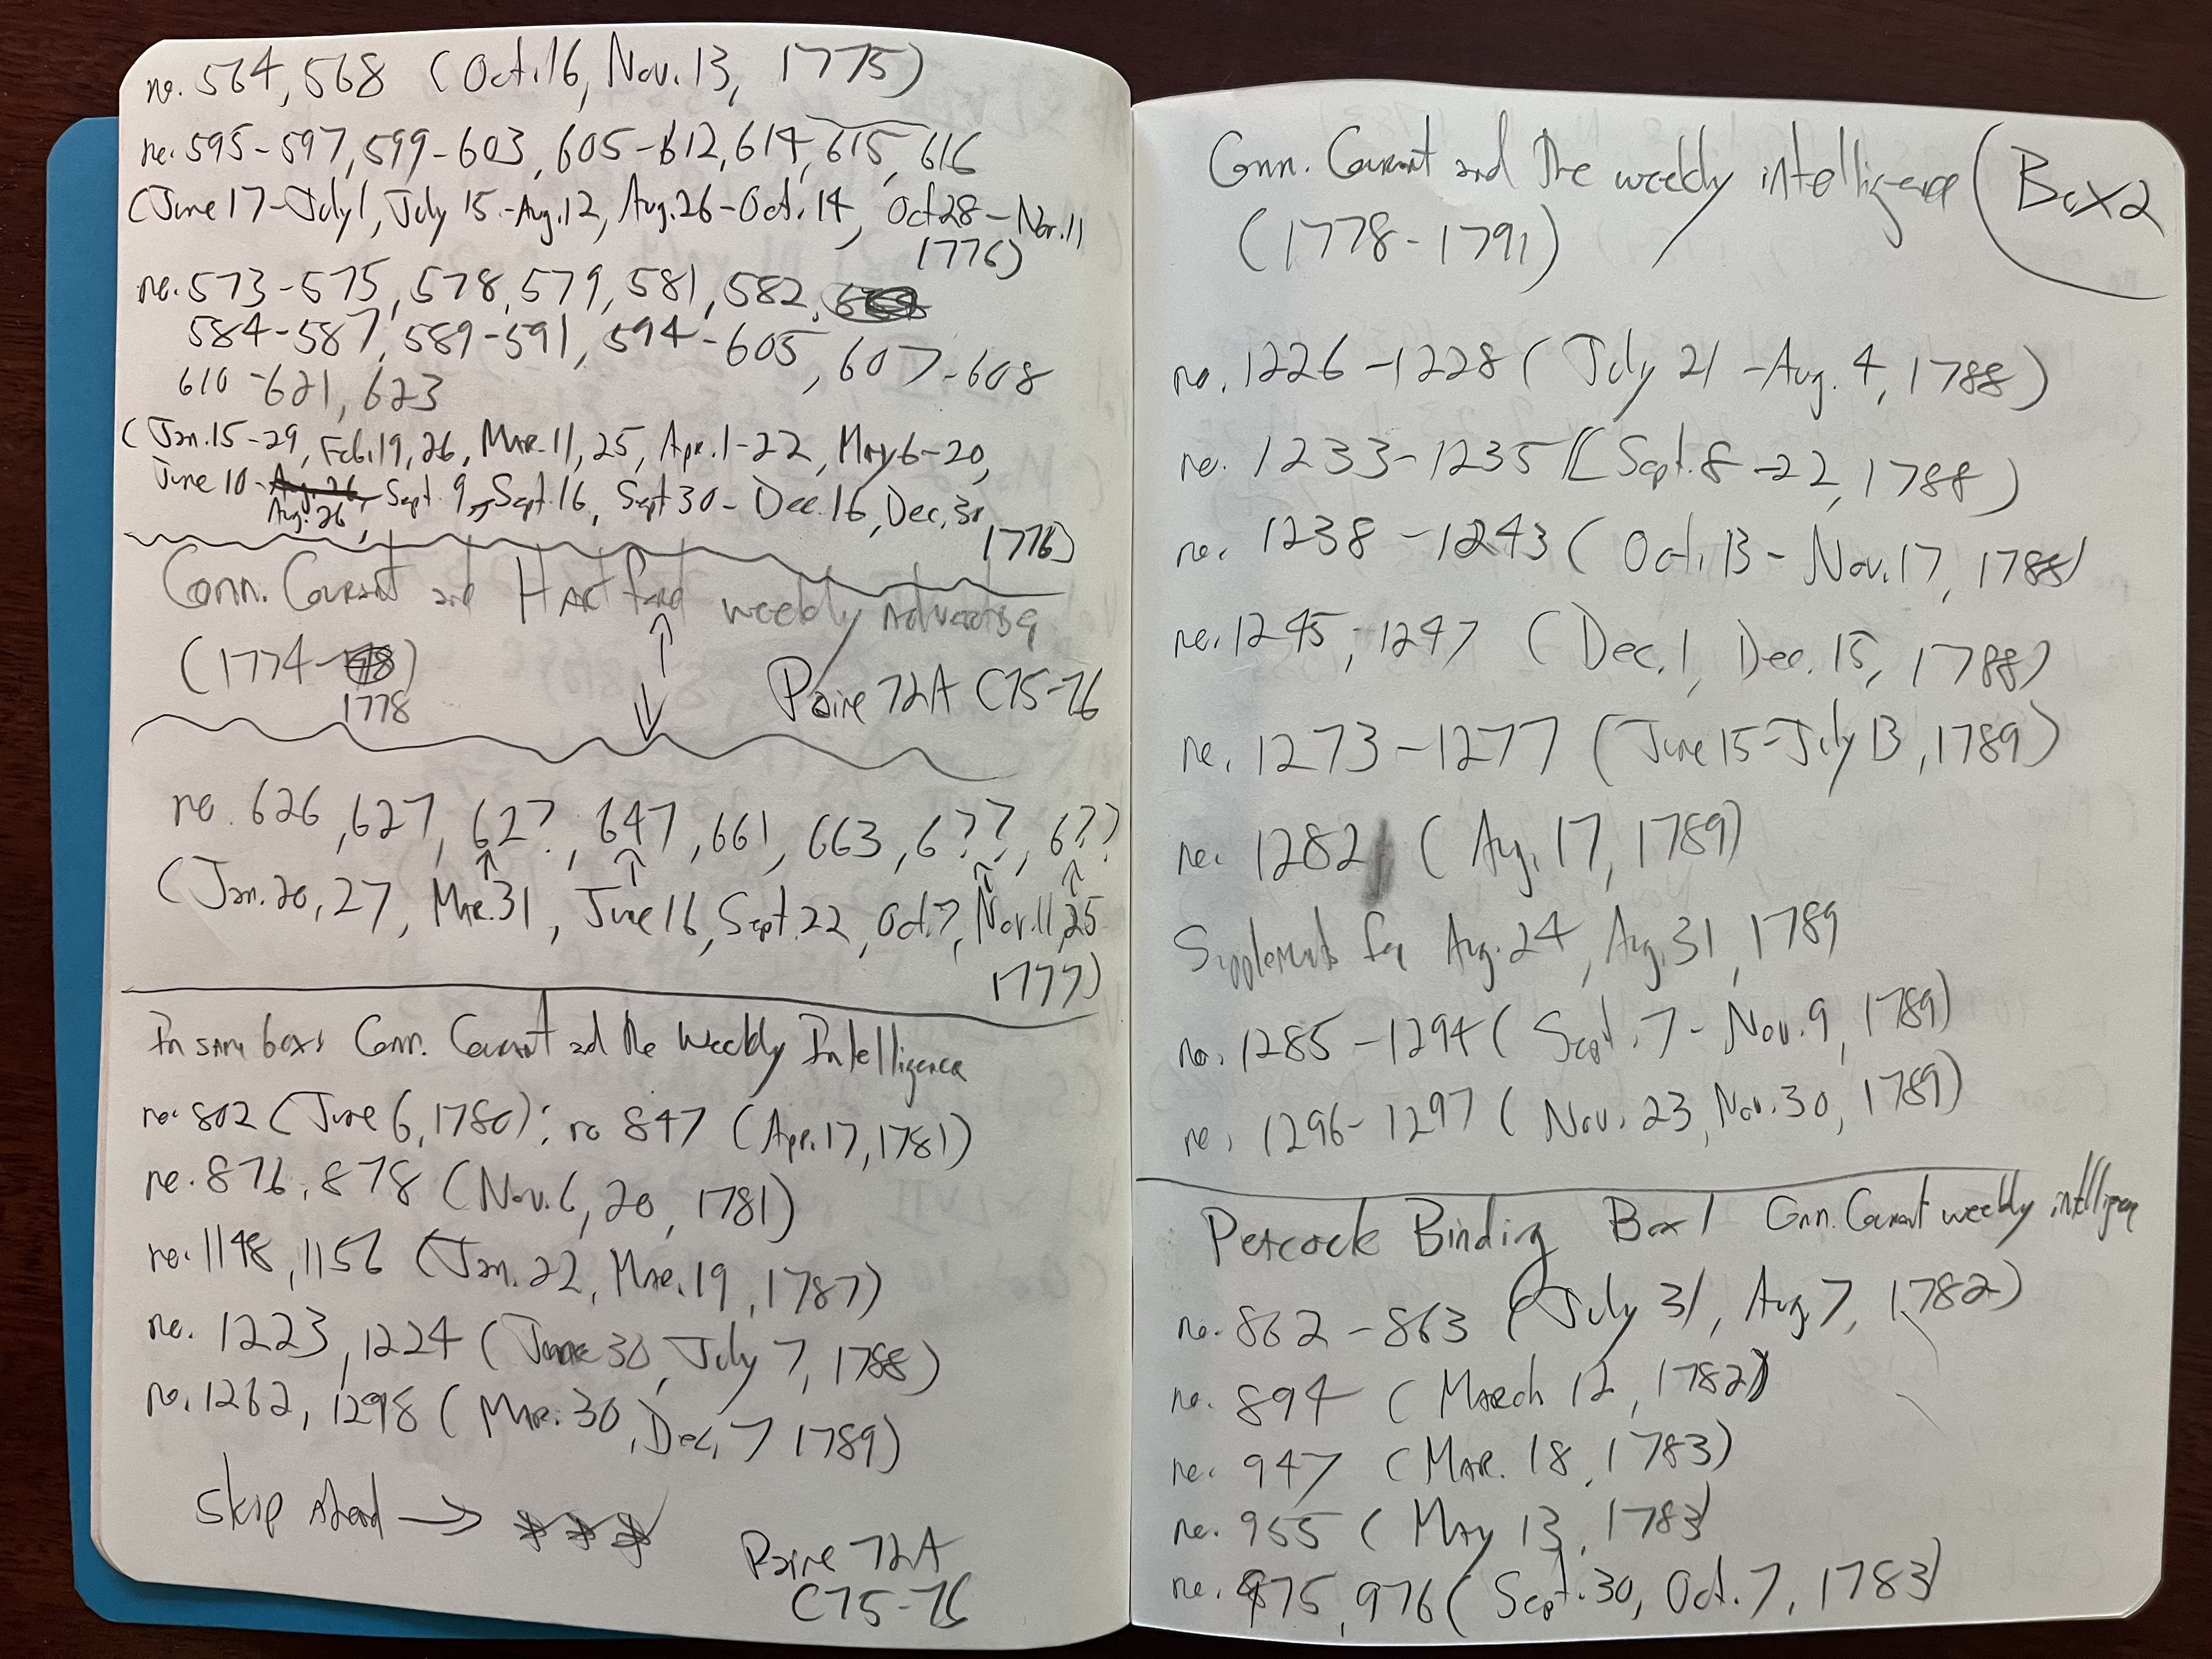 no. 564, 568 (Oct. 16, Nov. 13, 1775)
no. 595-597, 599-603, 605-612, 614, 615, 616
(June 17-July 1, July 15-Aug. 12, Aug. 26-Oct. 14, Oct 28-Nov. 11
1776)
no. 573-575, 578, 579, 581, 582,
584-587, 589-591, 594-605, 607-608
610-621, 623
(Jan. 15-29, Feb. 19, 26, Mar. 11, 25, Apr. 1-22, May 6-20,
June 10-Aug. 26, Sept. 9, Sept. 16, Sept 30-Dec. 16, Dec. 30
Aug. 26,
1776)
Conn. Courant and Hartford weekly Advertiser
(1774-
1778)
Paine 72A C75-76
no. 626, 627, 62?, 647, 661, 663, 6??, 6??
(Jan. 20, 27, Mar. 31, June 16, Sept. 22, Oct. 7, Nov. 11, 25
1777)
In same box: Conn. Courant and the Weekly Intelligence
no. 802 (June 6, 1780); no 847 (Apr. 17, 1781)
no. 876, 878 (Nov. 6, 20, 1781)
no. 1148, 1156 (Jan. 22, Mar. 19, 1787)
no. 1223, 1224 (June 30, July 7, 1788)
no. 1262, 1298 (Mar. 30, Dec. 7 1789)
Skip Ahead → ***
Paine 72A
C75-76
Conn. Courant and the weekly intelligence (Box 2
(1778-1791)
no. 1226-1228 (July 21-Aug. 4, 1788)
no. 1233-1235 (Sept. 8-22, 1788)
no. 1238-1243 (Oct. 13-Nov. 17, 1788)
no. 1245, 1247 (Dec. 1, Dec. 15, 1788)
no. 1273-1277 (June 15-July 13, 1789)
no. 1282 (Aug. 17, 1789)
Supplements for Aug. 24, Aug. 31, 1789
no. 1285-1294 (Sept. 7-Nov. 9, 1789)
no. 1296-1297 (Nov. 23, Nov. 30, 1789)
Peacock Binding Box 1 Conn. Courant weekly intelligence
no. 862-863 (July 31, Aug 7, 1782)
no. 894 (March 12, 1782)
no. 947 (Mar. 18, 1783)
no. 955 (May 13, 1783)
no. 975, 976 (Sept. 30, Oct. 7, 1783)